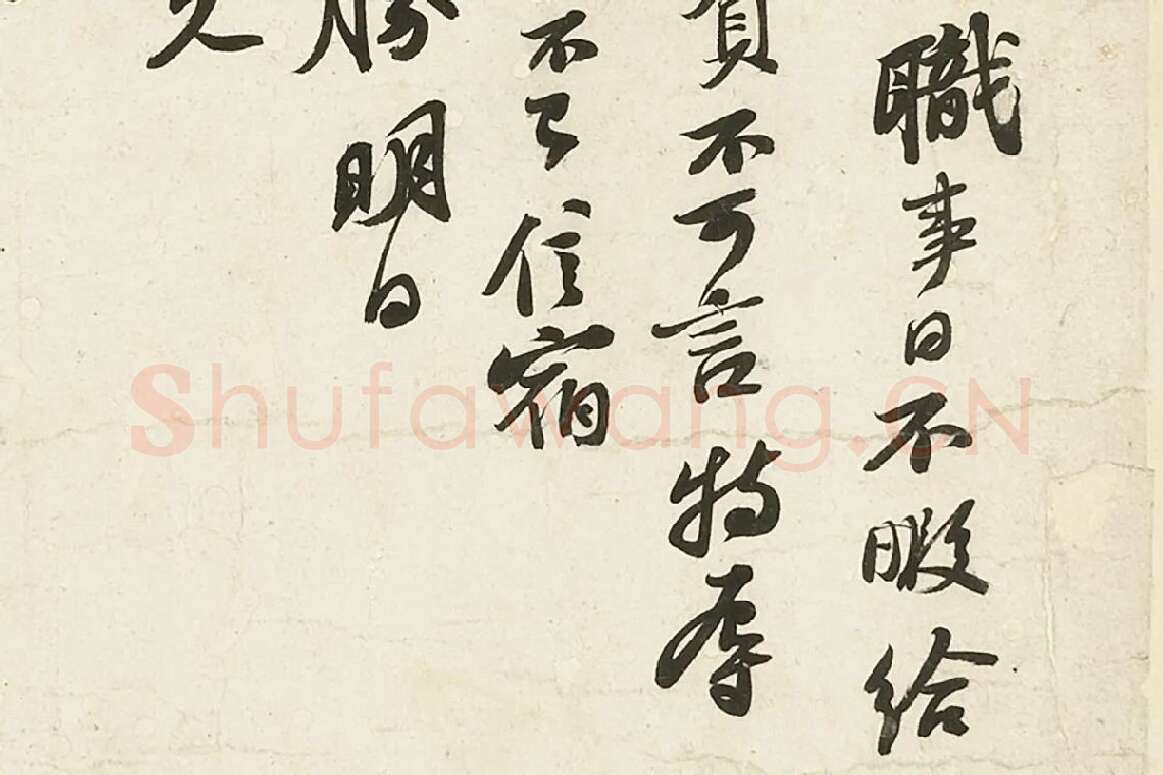 職事日不暇給
負不可言特辱
不已信宿
勝明日
Shufawang.CN